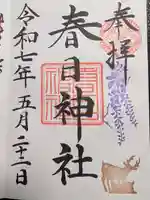 奉拝
春日神社
令和七年五月二十二日